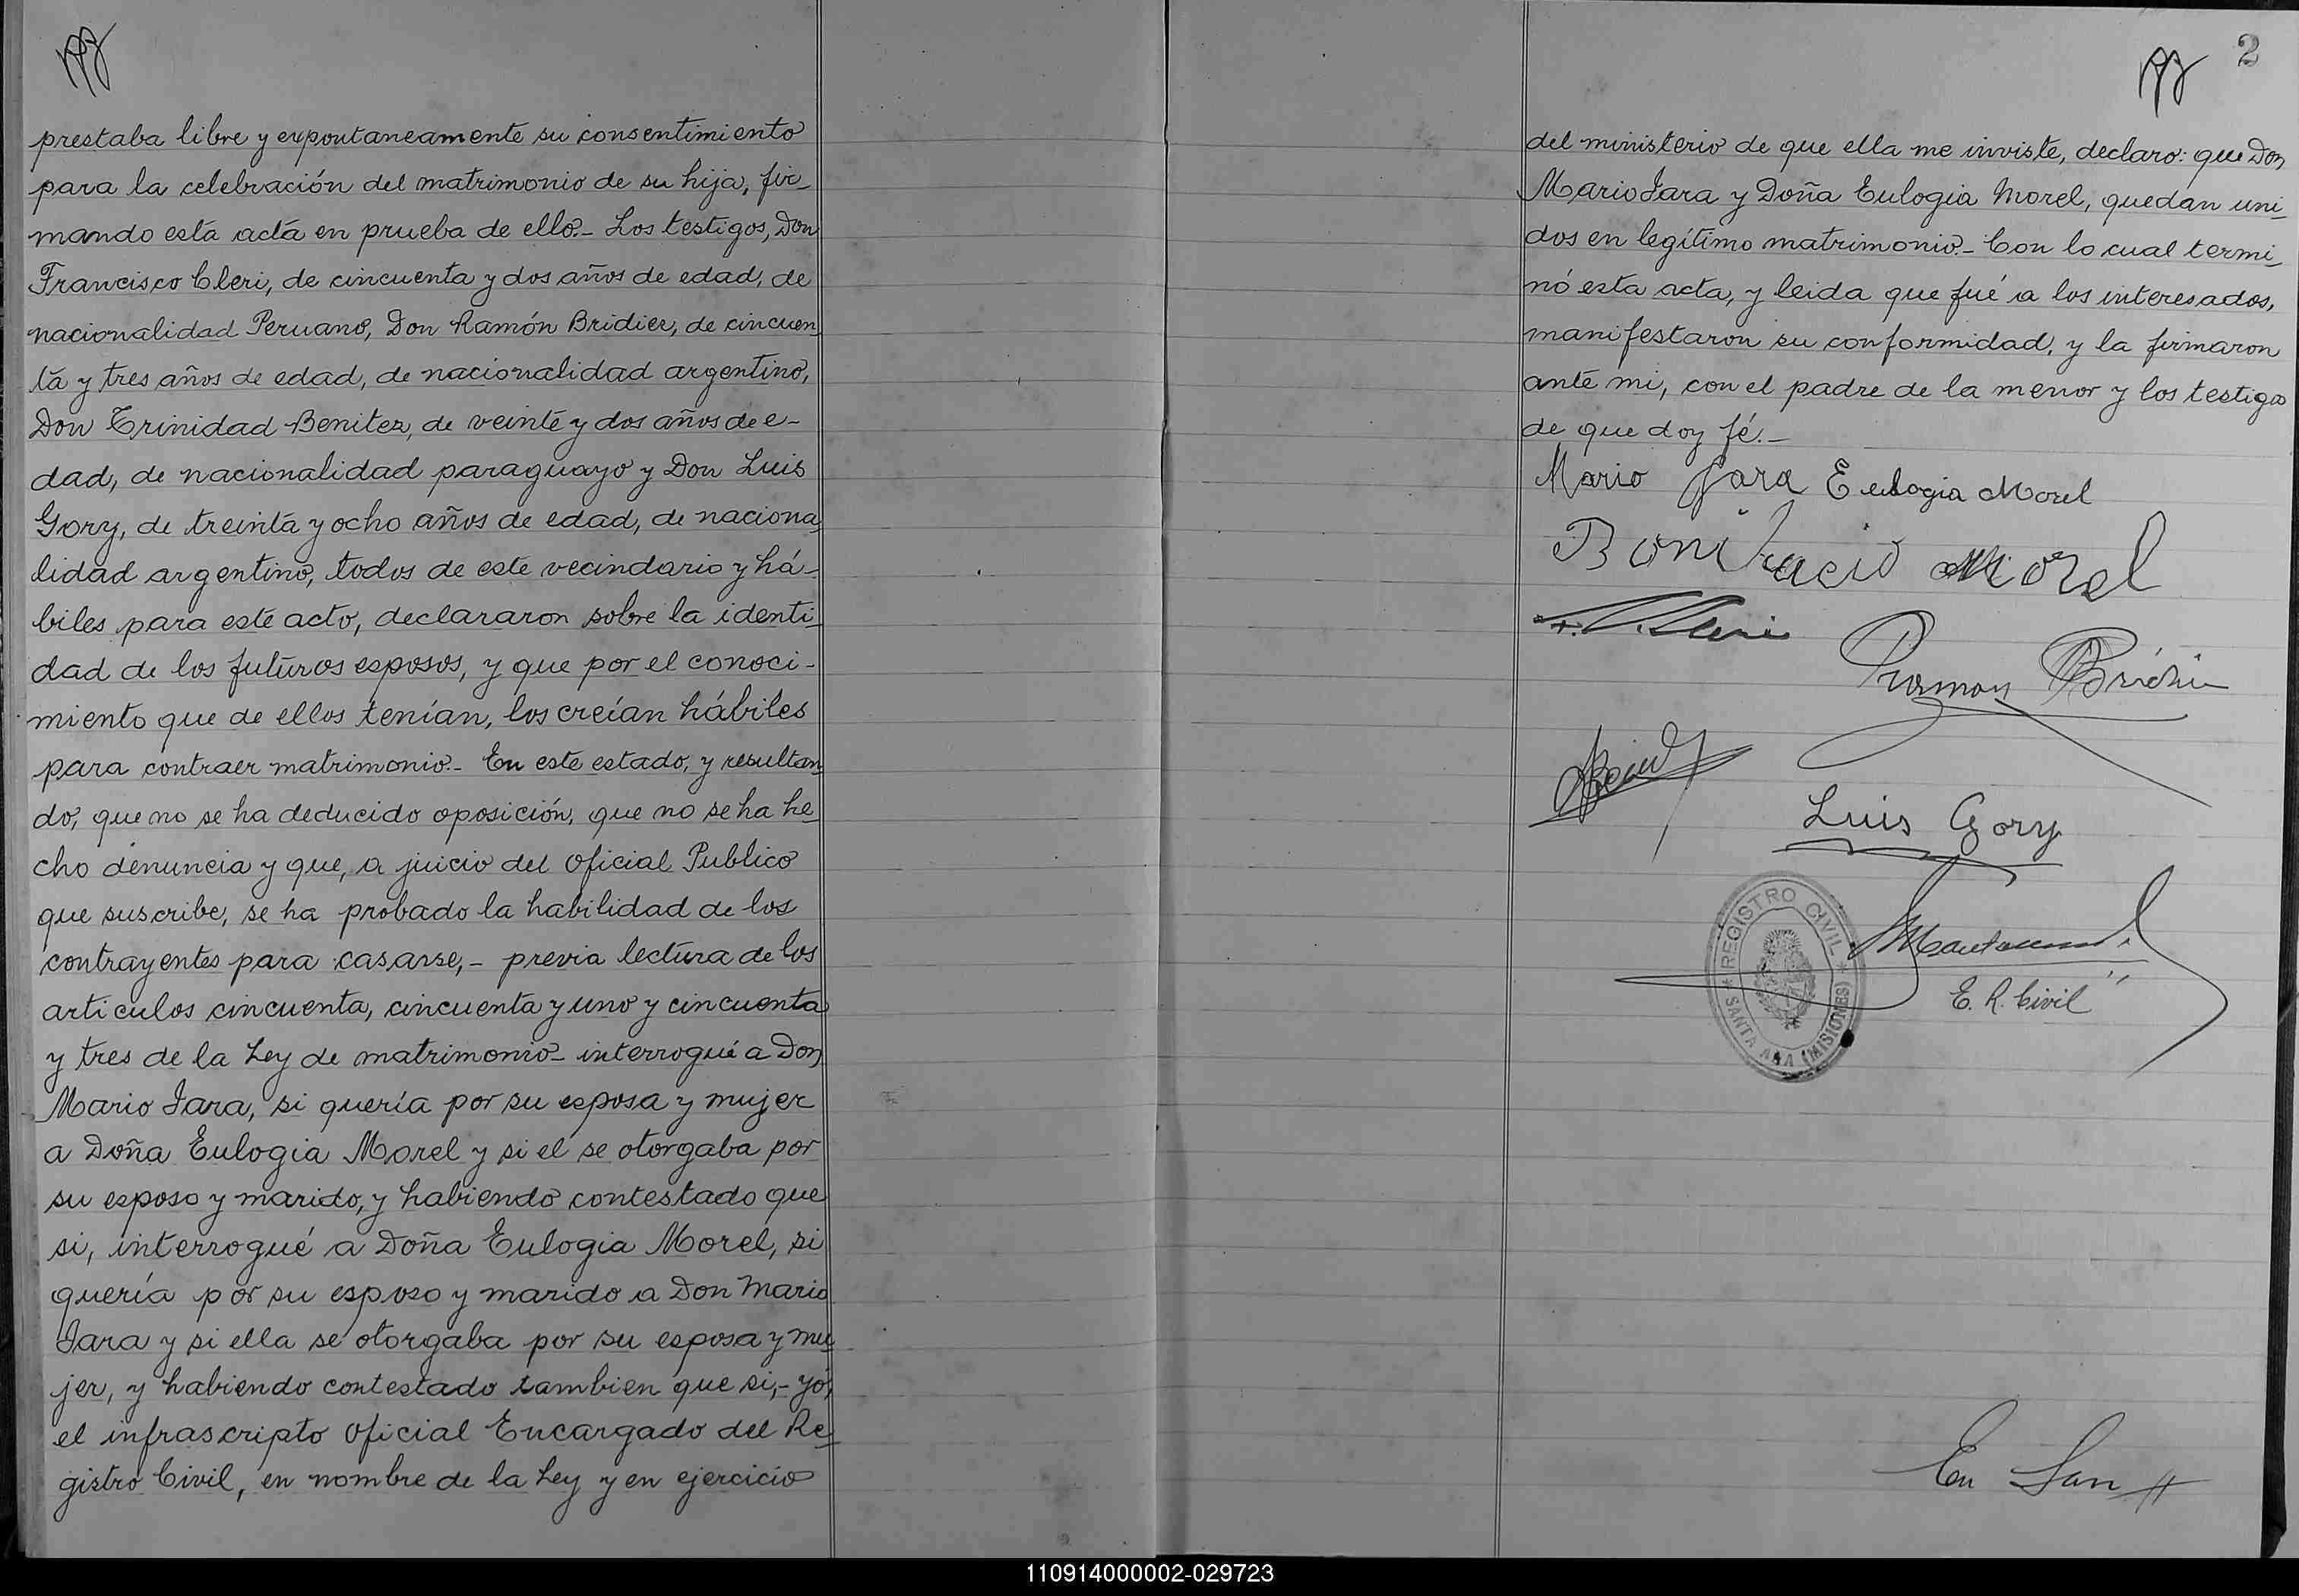 prestaba libre y expontaneamente su consentimiento
para la celebración del matrimonio de su hija, fir-
mando esta acta en prueba de ello.- Los testigos, Don
Francisco Cleri, de cincuenta y dos años de edad, de
nacionalidad Peruano, Don Ramón Bridier, de cincuen-
ta y tres años de edad, de nacionalidad argentino,
Don Trinidad Benitez, de veinte y dos años de e-
dad, de nacionalidad paraguayo y Don Luis
Gory, de treinta y ocho años de edad, de naciona-
lidad argentino, todos de este vecindario y há-
biles para este acto, declararon sobre la identi-
dad de los futuros esposos, y que por el conoci-
miento que de ellos tenían, los creían hábiles
para contraer matrimonio.- En este estado, y resultan-
do, que no se ha deducido oposición, que no se ha he-
cho denuncia y que, a juicio del Oficial Publico
que suscribe, se ha probado la habilidad de los
contrayentes para casarse,- previa lectura de los
articulos cincuenta, cincuenta y uno y cincuenta
y tres de la Ley de matrimonio- interrogué a Don
Mario Jara, si quería por su esposa y mujer
a Doña Eulogia Morel y si el se otorgaba por
su esposo y marido, y habiendo contestado que
si, interrogué a Doña Eulogia Morel, si
quería por su esposo y marido a Don Mario
Jara y si ella se otorgaba por su esposa y mu-
jer, y habiendo contestado tambien que si,- yó,
el infrascripto Oficial Encargado del Re-
gistro Civil, en nombre de la Ley y en ejercicio
2
del ministerio de que ella me inviste, declaro: que Don
Mario Jara y Doña Eulogia Morel, quedan uni-
dos en legítimo matrimonio.- Con lo cual termi-
nó esta acta, y leida que fué a los interesados,
manifestaron su conformidad, y la firmaron
ante mi, con el padre de la menor y los testigos
de que doy fé.-
Mario Jara Eulogia Morel
Bonifacio Morel
Ramon Bridier
Luis Gory
REGISTRO CIVIL
* SANTA ANA (MISIONES) *
E. R. Civil
En San //
110914000002-029723